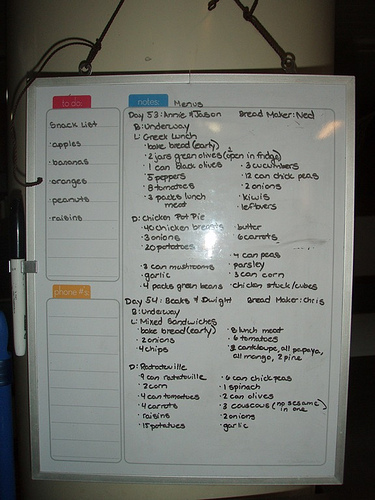 to do:
Snack List
· apples
· bananas
· oranges
· peanuts
· raisins
phone #'s
notes: Menus
Day 53: Annie & Jason Bread Maker: Ned
B: Underway
L: Greek Lunch
· bake bread (early)
· 2 jars green olives (open in fridge)
· 1 can black olives · 3 cucumbers
· 5 peppers · 12 can chick peas
· 8 tomatoes · 2 onions
· 3 packs lunch meat · kiwis
· leftovers
D: Chicken Pot Pie
· 40 chicken breasts · butter
· 3 onions · 6 carrots
· 20 potatoes
· 4 can peas
· 3 can mushrooms · parsley
· garlic · 3 can corn
· 4 packs green beans · chicken stock/cubes
Day 54: Becks & Dwight Bread Maker: Chris
B: Underway
L: Mixed Sandwiches
· bake bread (early) · 8 lunch meat
· 2 onions · 6 tomatoes
· 4 chips · 2 cantaloupe, all papaya,
all mango, 2 pine
D: Ratatouille
· 9 can ratatouille · 6 can chick peas
· 2 corn · 1 spinach
· 4 can tomatoes · 2 can olives
· 4 carrots · 3 couscous (no sesame in one)
· raisins · 2 onions
· 15 potatoes · garlic